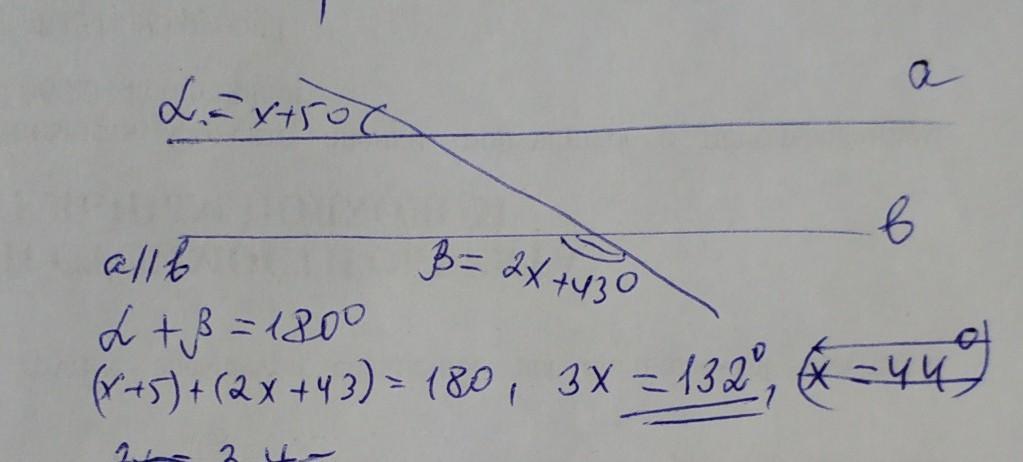 a
α = x+5°
b
a||b
β = 2x+43°
α + β = 180°
(x+5)+(2x+43) = 180, 3x = 132°, (x = 44°)